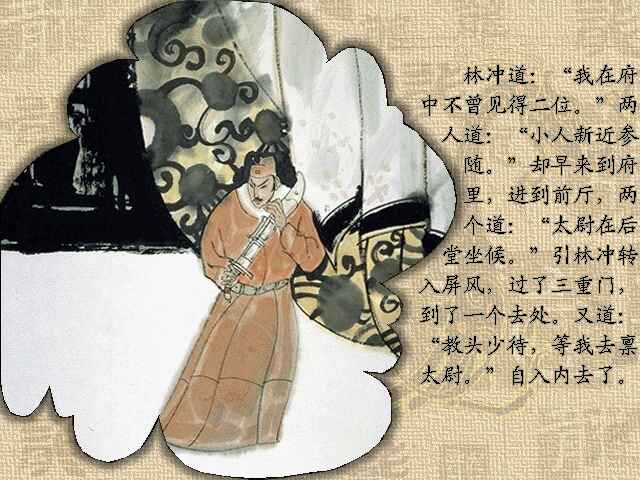 林冲道：“我在府
中不曾见得二位。”两
人道：“小人新近参
随。”却早来到府
里，进到前厅，两
个道：“太尉在后
堂坐候。”引林冲转
入屏风，过了三重门，
到了一个去处。又道：
“教头少待，等我去禀
太尉。”自入内去了。